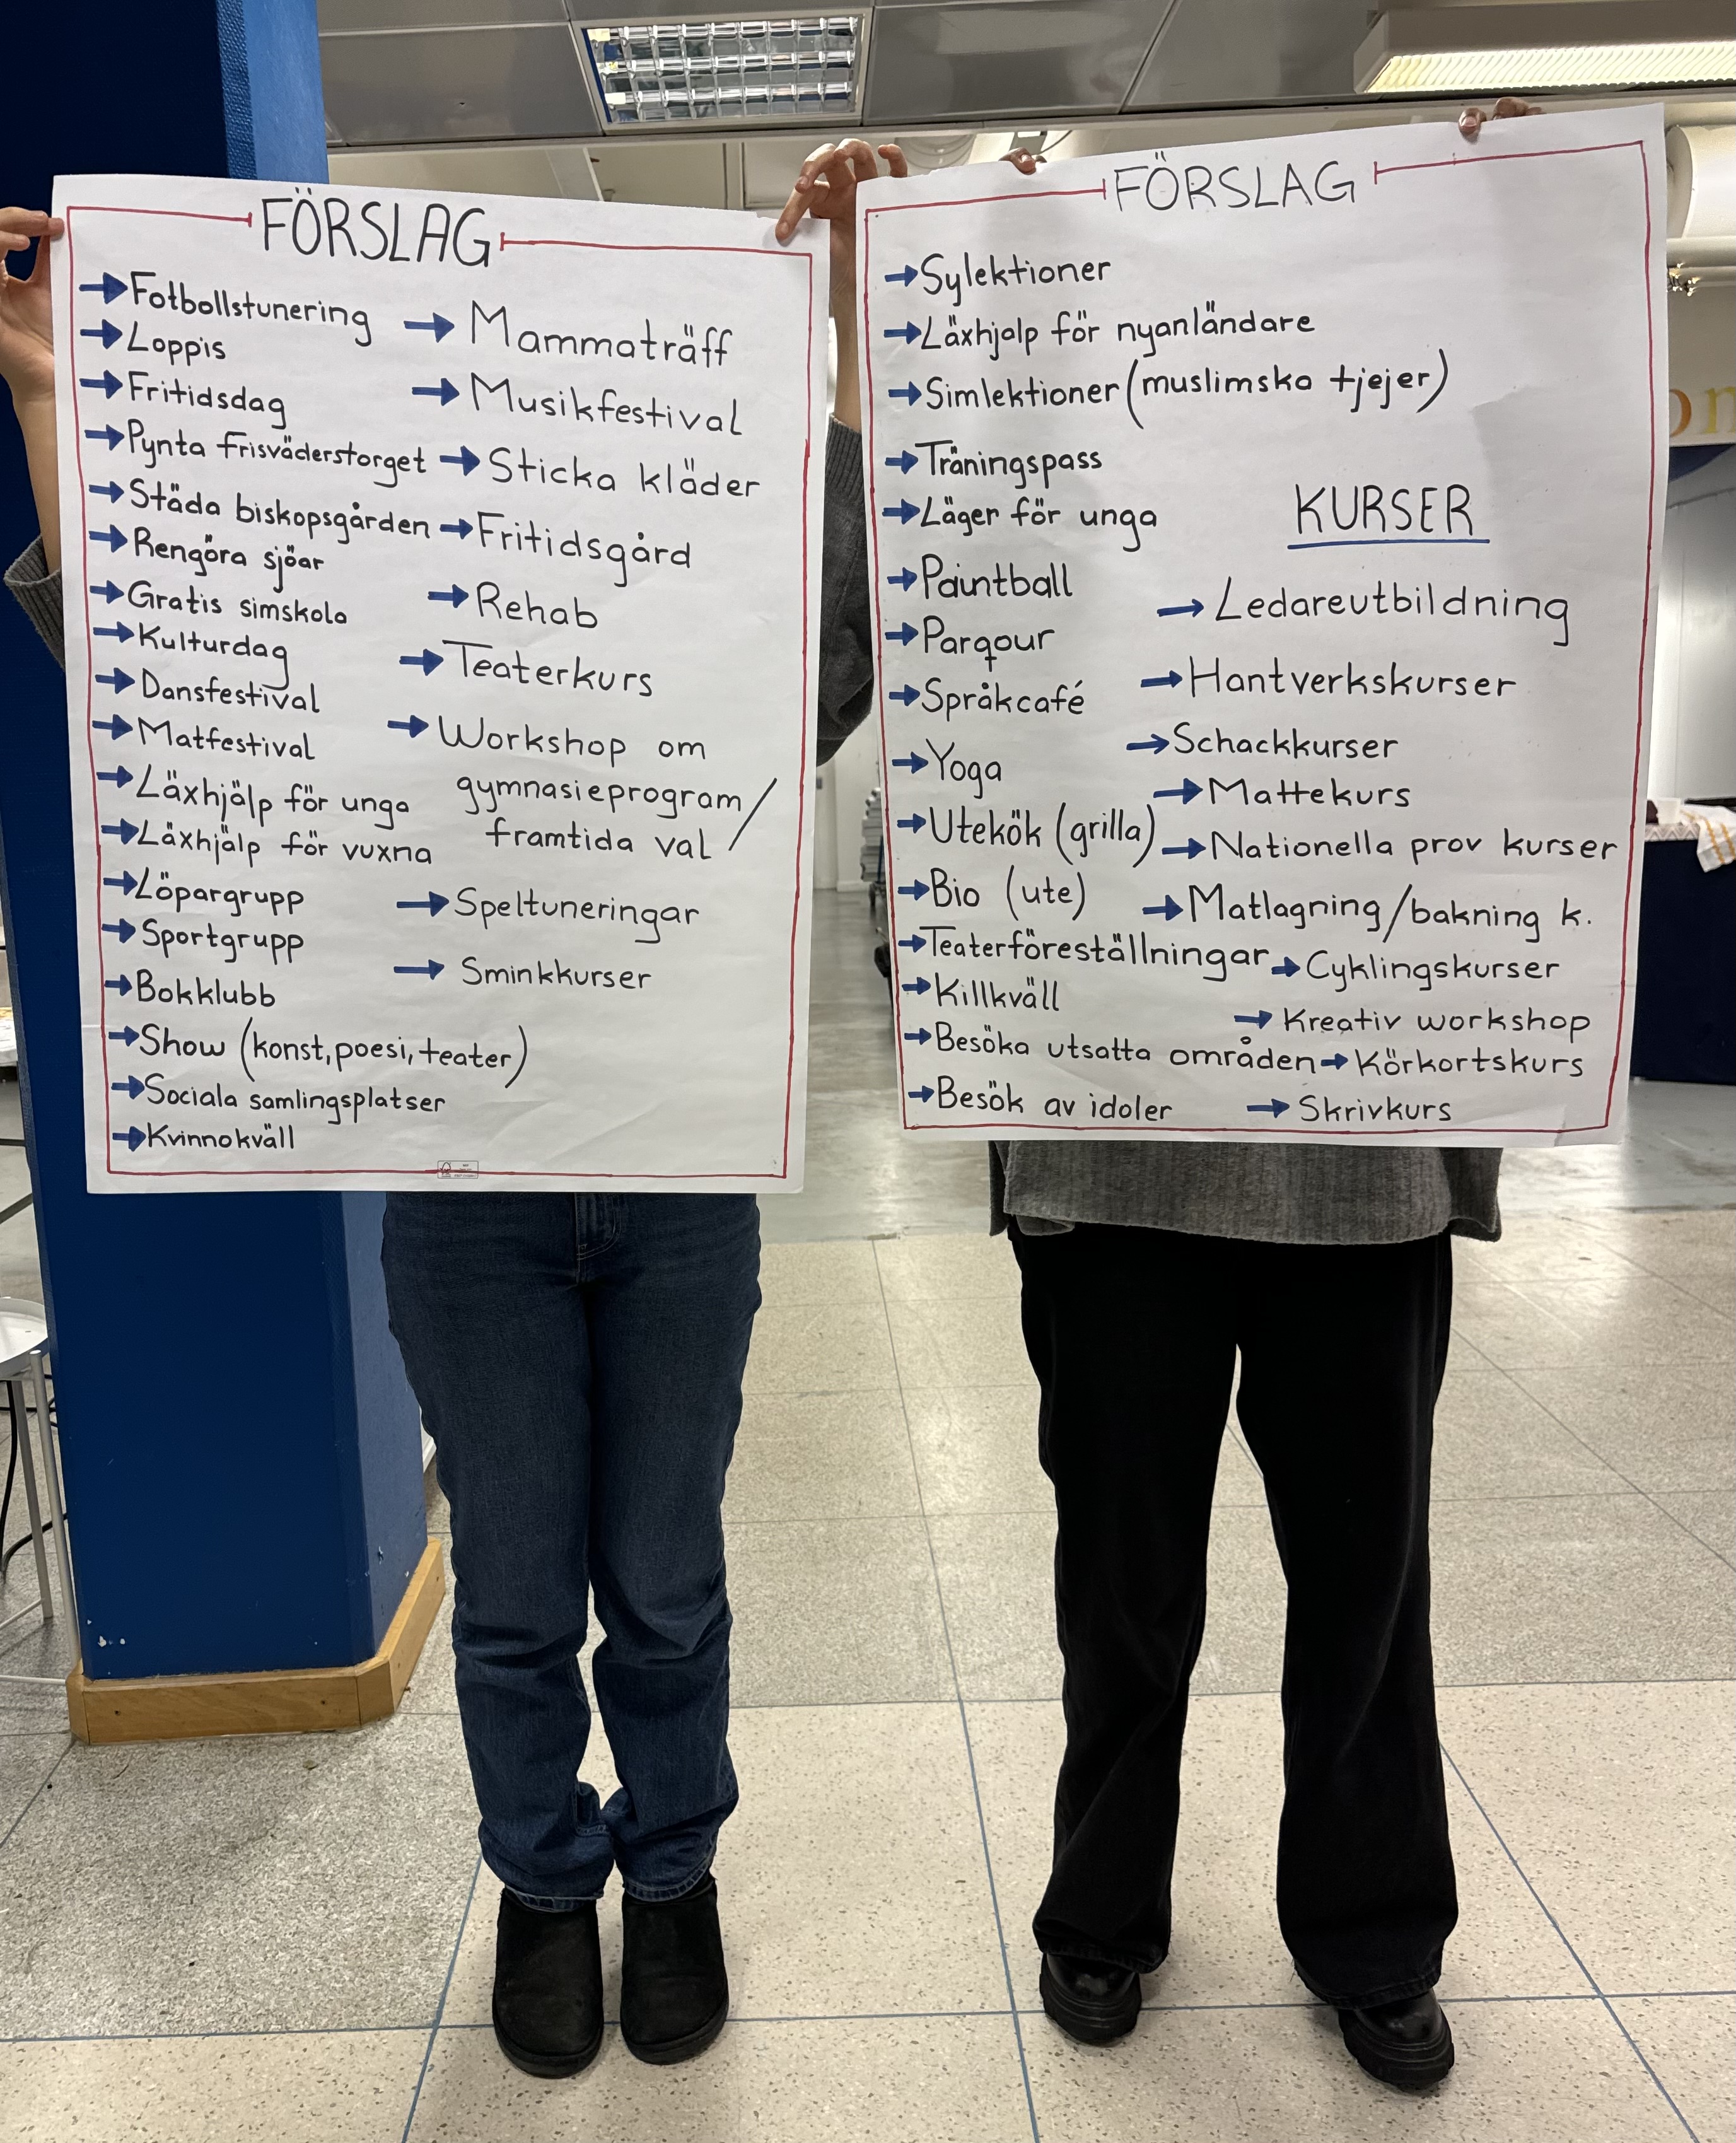 FÖRSLAG
→ Fotbollstunering
→ Loppis
→ Fritidsdag
→ Pynta frisväderstorget
→ Städa biskopsgården
→ Rengöra sjöar
→ Gratis simskola
→ Kulturdag
→ Dansfestival
→ Matfestival
→ Läxhjälp för unga
→ Läxhjälp för vuxna
→ Löpargrupp
→ Sportgrupp
→ Bokklubb
→ Show (konst, poesi, teater)
→ Sociala samlingsplatser
→ Kvinnokväll
→ Mammaträff
→ Musikfestival
→ Sticka kläder
→ Fritidsgård
→ Rehab
→ Teaterkurs
→ Workshop om
gymnasieprogram/
framtida val /
→ Speltuneringar
→ Sminkkurser
FÖRSLAG
→ Sylektioner
→ Läxhjalp för nyanländare
→ Simlektioner (muslimska tjejer)
→ Träningspass
→ Läger för unga
→ Paintball
→ Parqour
→ Språkcafé
→ Yoga
→ Utekök (grilla)
→ Bio (ute)
→ Teaterföreställningar
→ Killkväll
→ Besöka utsatta områden
→ Besök av idoler
KURSER
→ Ledareutbildning
→ Hantverkskurser
→ Schackkurser
→ Mattekurs
→ Nationella prov kurser
→ Matlagning/bakning k.
→ Cyklingskurser
→ Kreativ workshop
→ Körkortskurs
→ Skrivkurs
on